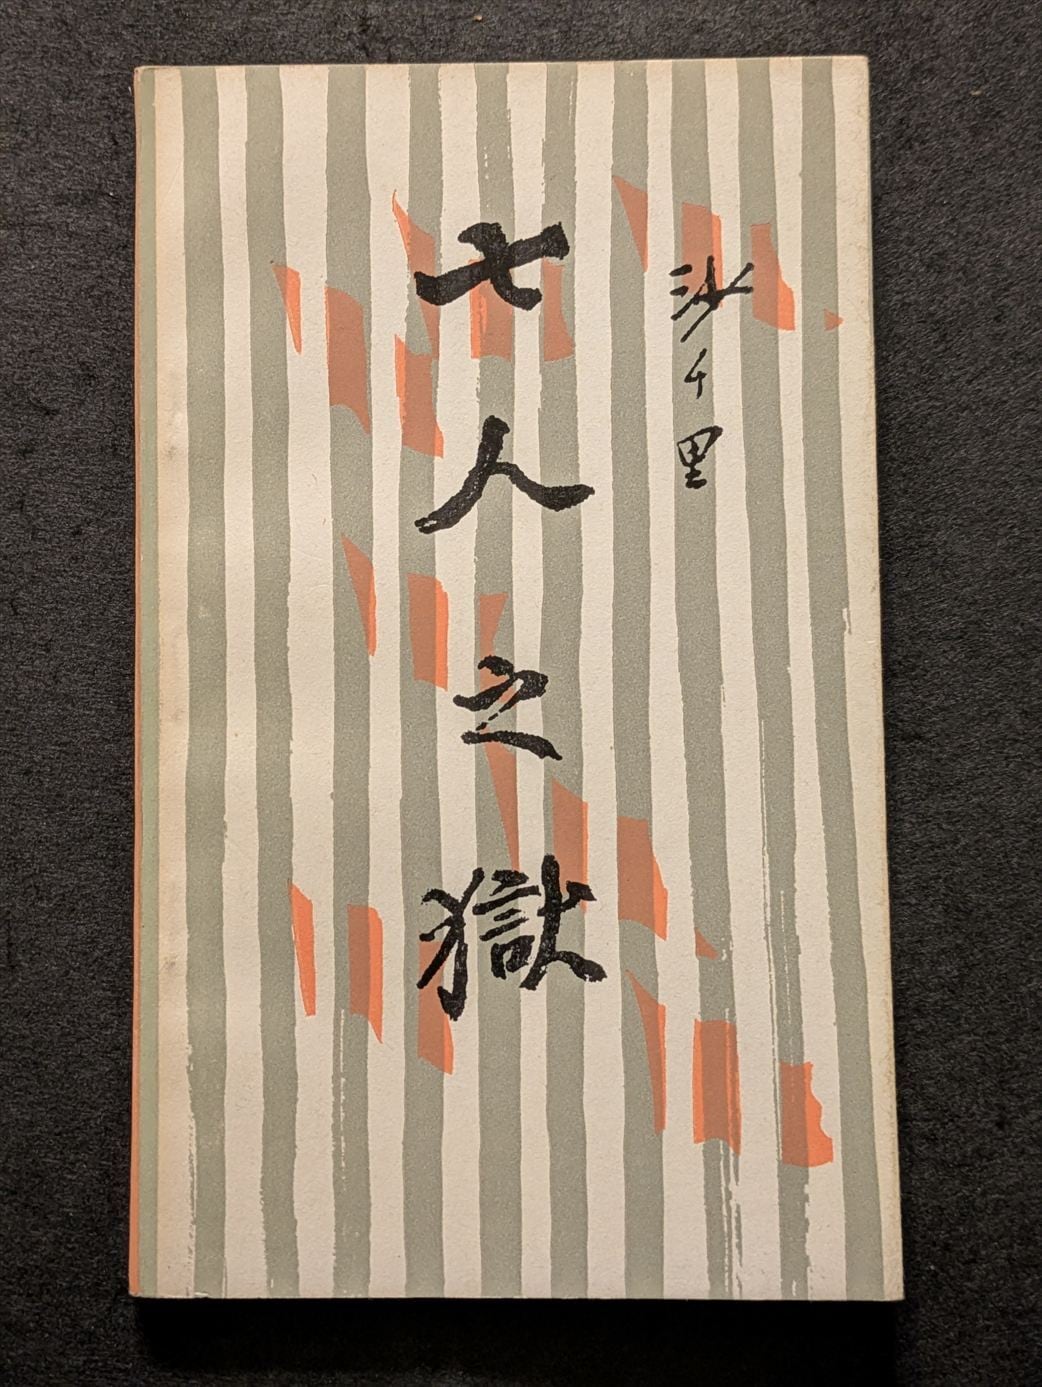 沙千里
七人之獄